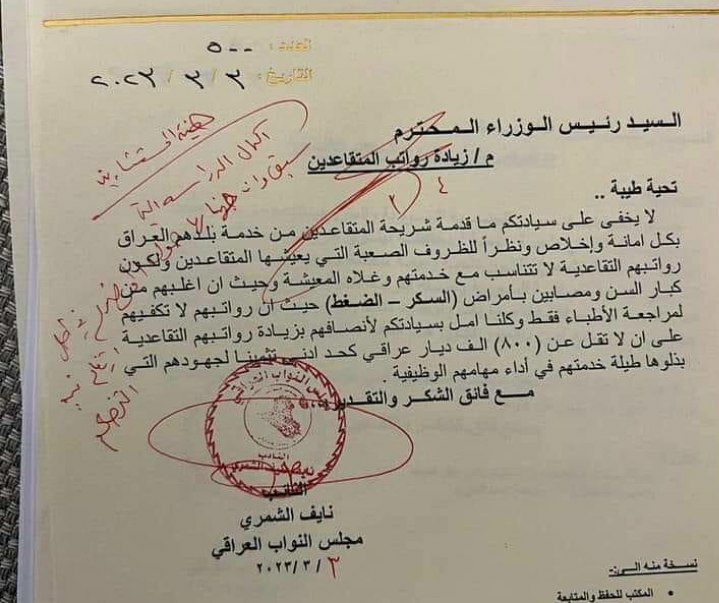 العدد : ٥٠٠
التاريخ : ٣ / ٣ / ٢٠٢٣
السيد رئيس الوزراء المحترم
م / زيادة رواتب المتقاعدين
تحية طيبة ..
لا يخفى على سيادتكم ما قدمة شريحة المتقاعدين من خدمة بلدهم العراق
بكل امانة وإخلاص ونظراً للظروف الصعبة التي يعيشها المتقاعدين ولكون
رواتبهم التقاعدية لا تتناسب مع خدمتهم وغلاء المعيشة وحيث ان اغلبهم من
كبار السن ومصابين بأمراض (السكر – الضغط) حيث ان رواتبهم لا تكفيهم
لمراجعة الأطباء فقط وكلنا امل بسيادتكم لأنصافهم بزيادة رواتبهم التقاعدية
على ان لا تقل عن (٨٠٠) الف دينار عراقي كحد ادنى تثمينا لجهودهم التي
بذلوها طيلة خدمتهم في أداء مهامهم الوظيفية .
مع فائق الشكر والتقدير ...
هيئة المستشارين
٤
مجلس النواب العراقي
النائب
النائب
نايف الشمري
مجلس النواب العراقي
٣ / ٣ / ٢٠٢٣
نسخة منه الى:-
• المكتب للحفظ والمتابعة